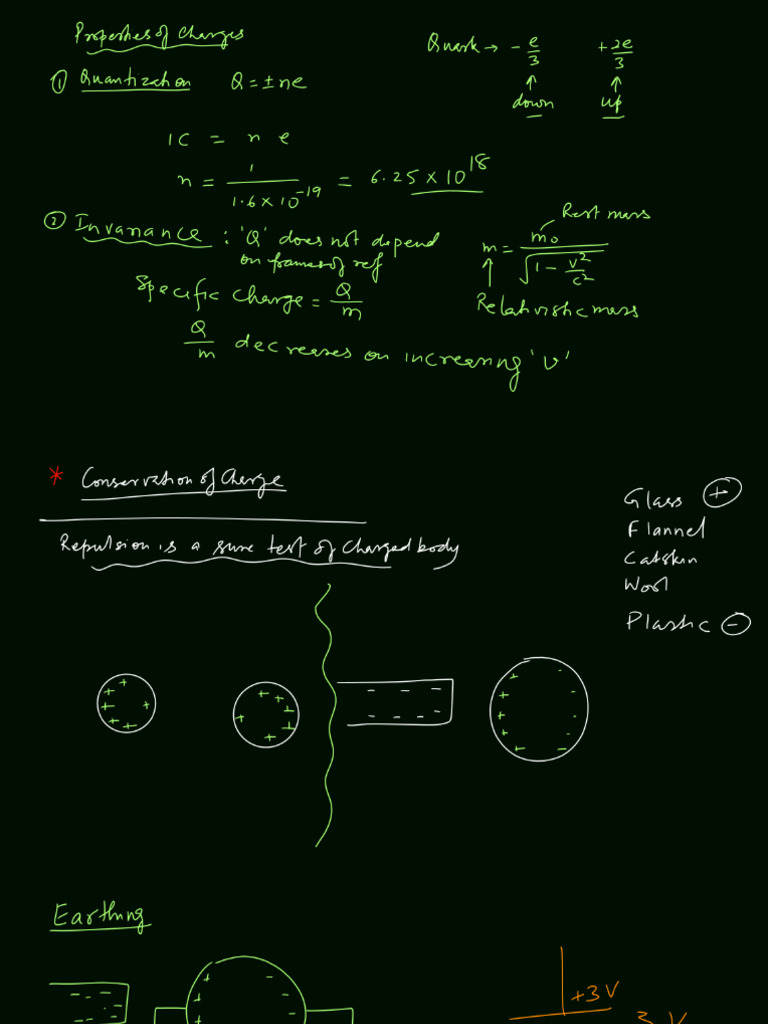 Properties of Charges
① Quantization Q = ±ne
Quark → - e/3 + 2e/3
↑ ↑
down up
1C = n e
n = 1/(1.6 × 10^-19) = 6.25 × 10^18
② Invariance : 'Q' does not depend
on frames of ref
Rest mass
m = m₀/√(1 - v²/c²)
↑
Relativistic mass
Specific charge = Q/m
Q/m decreases on increasing 'v'
* Conservation of Charge
Repulsion is a sure test of Charged body
Glass +
Flannel
Catskin
Wool
Plastic -
+ + + + + +
+ + + + + +
- - - - - -
+ + + + + - - - - -
Earthing
- - - - - -
+ + + - - -
+3V
3 V